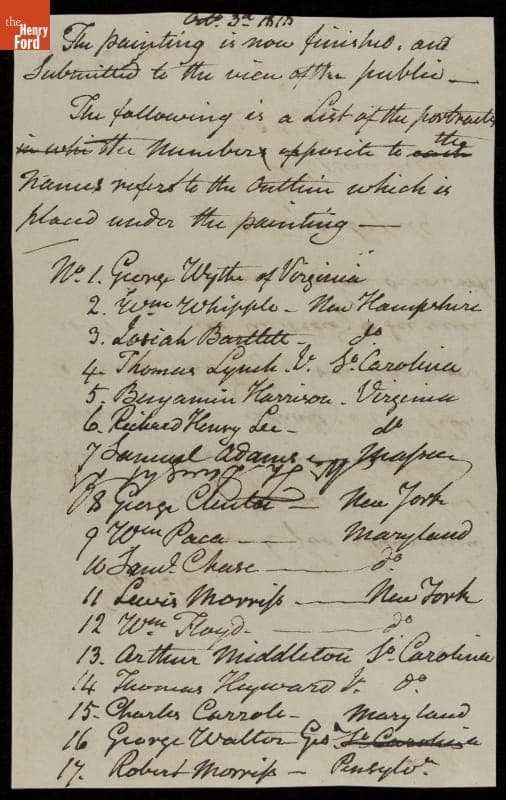 the
Henry
Ford
Octr. 3d 1818
The painting is now finished, and
Submitted to the view of the public —
The following is a List of the portraits
in whi the Numbers opposite to each the
names refers to the Outline which is
placed under the painting —
No. 1. George Wythe of Virginia
2. Wm Whipple — New Hampshire
3. Josiah Bartlett — do
4. Thomas Lynch Jr. So. Carolina
5. Benjamin Harrison. Virginia
6. Richard Henry Lee — do
7 Samuel Adams
8 George Clinton — New York
9 Wm Paca — Maryland
10 Saml. Chase — do
11 Lewis Morriss — New York
12 Wm Floyd — do
13. Arthur Middleton So. Carolina
14 Thomas Heyward Jr. do.
15. Charles Carroll — Maryland
16 George Walton Geo. So. Carolina
17. Robert Morriss — Pensylva.